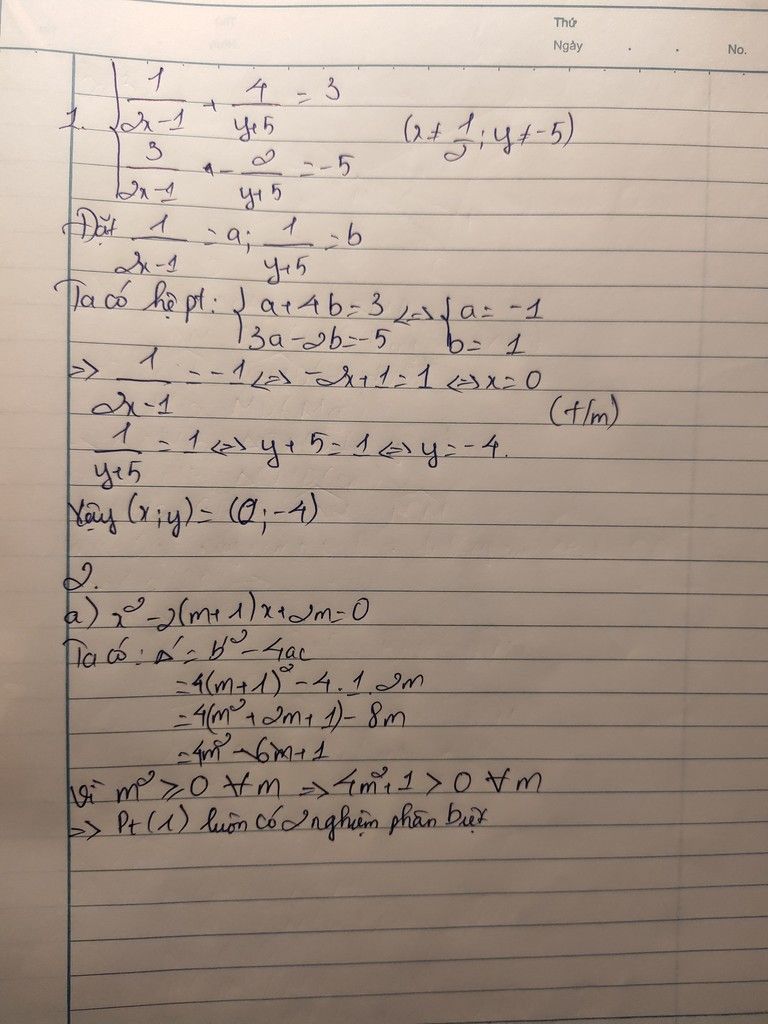 Thứ
Ngày . . No.
1. { 1/(2x-1) + 4/(y+5) = 3
3/(2x-1) - 2/(y+5) = -5 (x ≠ 1/2; y ≠ -5)
Đặt 1/(2x-1) = a; 1/(y+5) = b
Ta có hệ pt: { a + 4b = 3 <=> { a = -1
3a - 2b = -5 b = 1
=> 1/(2x-1) = -1 <=> -2x+1 = 1 <=> x = 0
(t/m)
1/(y+5) = 1 <=> y + 5 = 1 <=> y = -4.
Vậy (x;y) = (0;-4)
2.
a) x² - 2(m+1)x + 2m = 0
Ta có: Δ = b² - 4ac
= 4(m+1)² - 4.1.2m
= 4(m² + 2m + 1) - 8m
= 4m² + 1
Vì m² ≥ 0 ∀m => 4m² + 1 > 0 ∀m
=> Pt(1) luôn có 2 nghiệm phân biệt